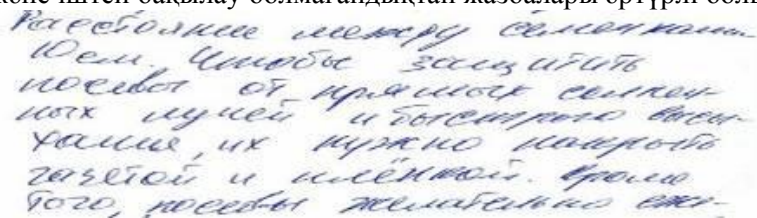 және іштен бақылау болмағандықтан жазбалары әртүрлі бол
Расстояние между семенами
10см. Чтобы защитить
посевы от прямых солнеч-
ных лучей и быстрого высы-
хания, их нужно накрыть
газетой и плёнкой. Кроме
того, посевы желательно еже-